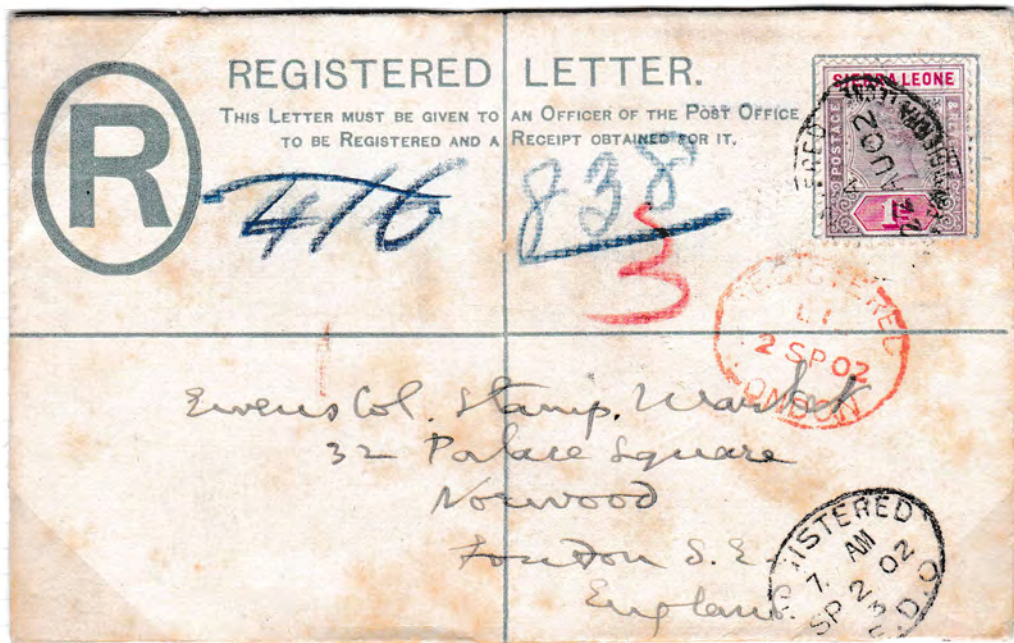 REGISTERED LETTER.
THIS LETTER MUST BE GIVEN TO AN OFFICER OF THE POST OFFICE
TO BE REGISTERED AND A RECEIPT OBTAINED FOR IT.
R
SIERRA LEONE
POSTAGE
AU 02
416
838
3
REGISTERED
2 SP 02
LONDON
Ewens Col. Stamp. Market
32 Palace Square
Norwood
London S.E.
England.
REGISTERED
7. AM
SP 2 02